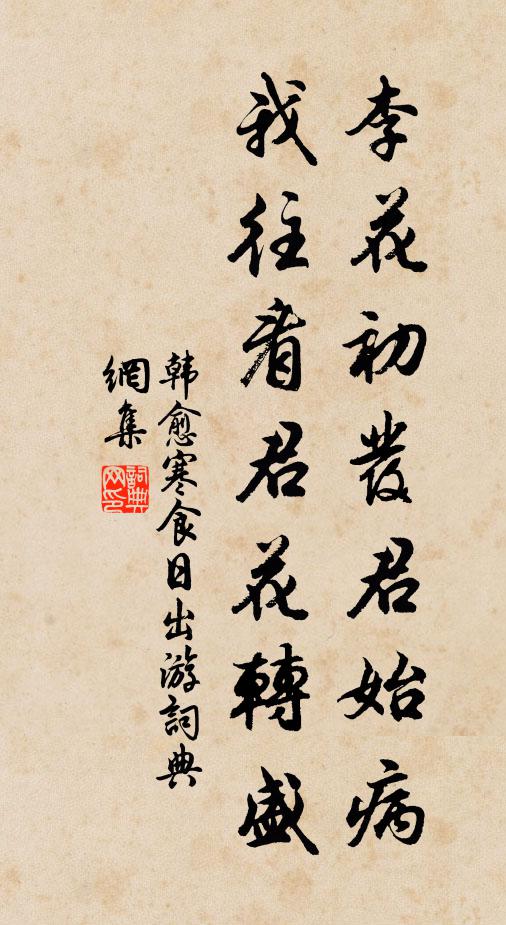 李花初發君始病
我往看君花轉盛
韩愈寒食日出游詞典
網集
詞典
网印